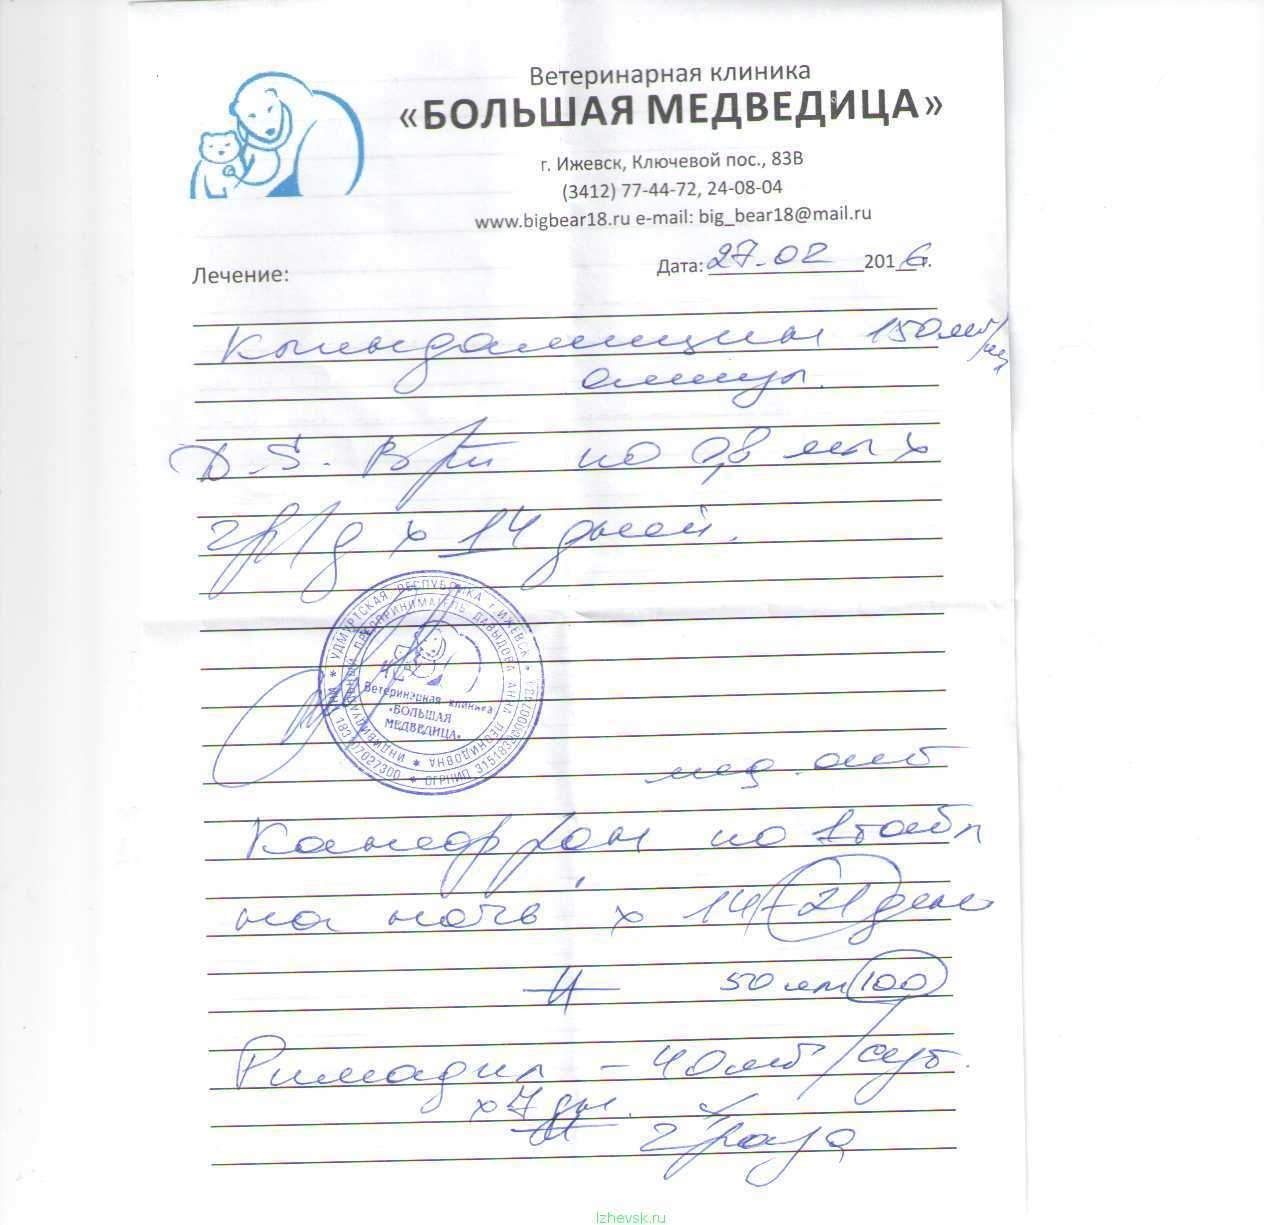 Ветеринарная клиника
«БОЛЬШАЯ МЕДВЕДИЦА»
г. Ижевск, Ключевой пос., 83В
(3412) 77-44-72, 24-08-04
www.bigbear18.ru e-mail: big_bear18@mail.ru
Лечение: Дата: 27.02 2016 г.
Клиндамицин 150мг/мл
D.S. В/м по 0,8 мл х
2р/д х 14 дней.
УДМУРТСКАЯ РЕСПУБЛИКА г. ИЖЕВСК
ИНДИВИДУАЛЬНЫЙ ПРЕДПРИНИМАТЕЛЬ ДАВЫДОВА АННА ЛЕОНИДОВНА
ОГРНИП
Ветеринарная клиника
«БОЛЬШАЯ
МЕДВЕДИЦА»
Канефрон по 1 табл
на ночь х 14-21 день
50 100
Римадил - 40мг/сут.
х 7 дн.
2 раза
Izhevsk.ru